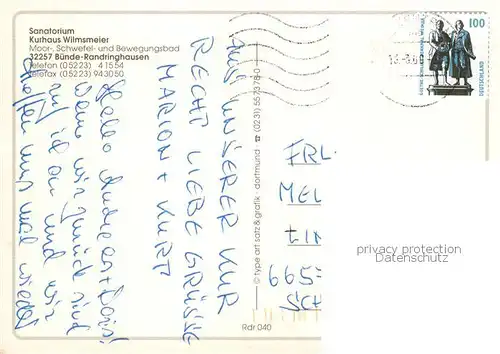 Sanatorium
Kurhaus Wilmsmeier
Moor-, Schwefel- und Bewegungsbad
32257 Bünde-Randringhausen
Telefon (05223) 41554
Telefax (05223) 943050
AUS UNSERER KUR
RECHT LIEBE GRÜSSE
MARION + KURT
Hallo Andrea +
wenn wir zurück sind
ruf ich an und wir
treffen uns mal wieder
© type art satz & grafik · dortmund ☎ (0231) 557378-0
Rdr 040
100
DEUTSCHLAND
FRL.
MEL
EIN
665
SCH
privacy protection
Datenschutz